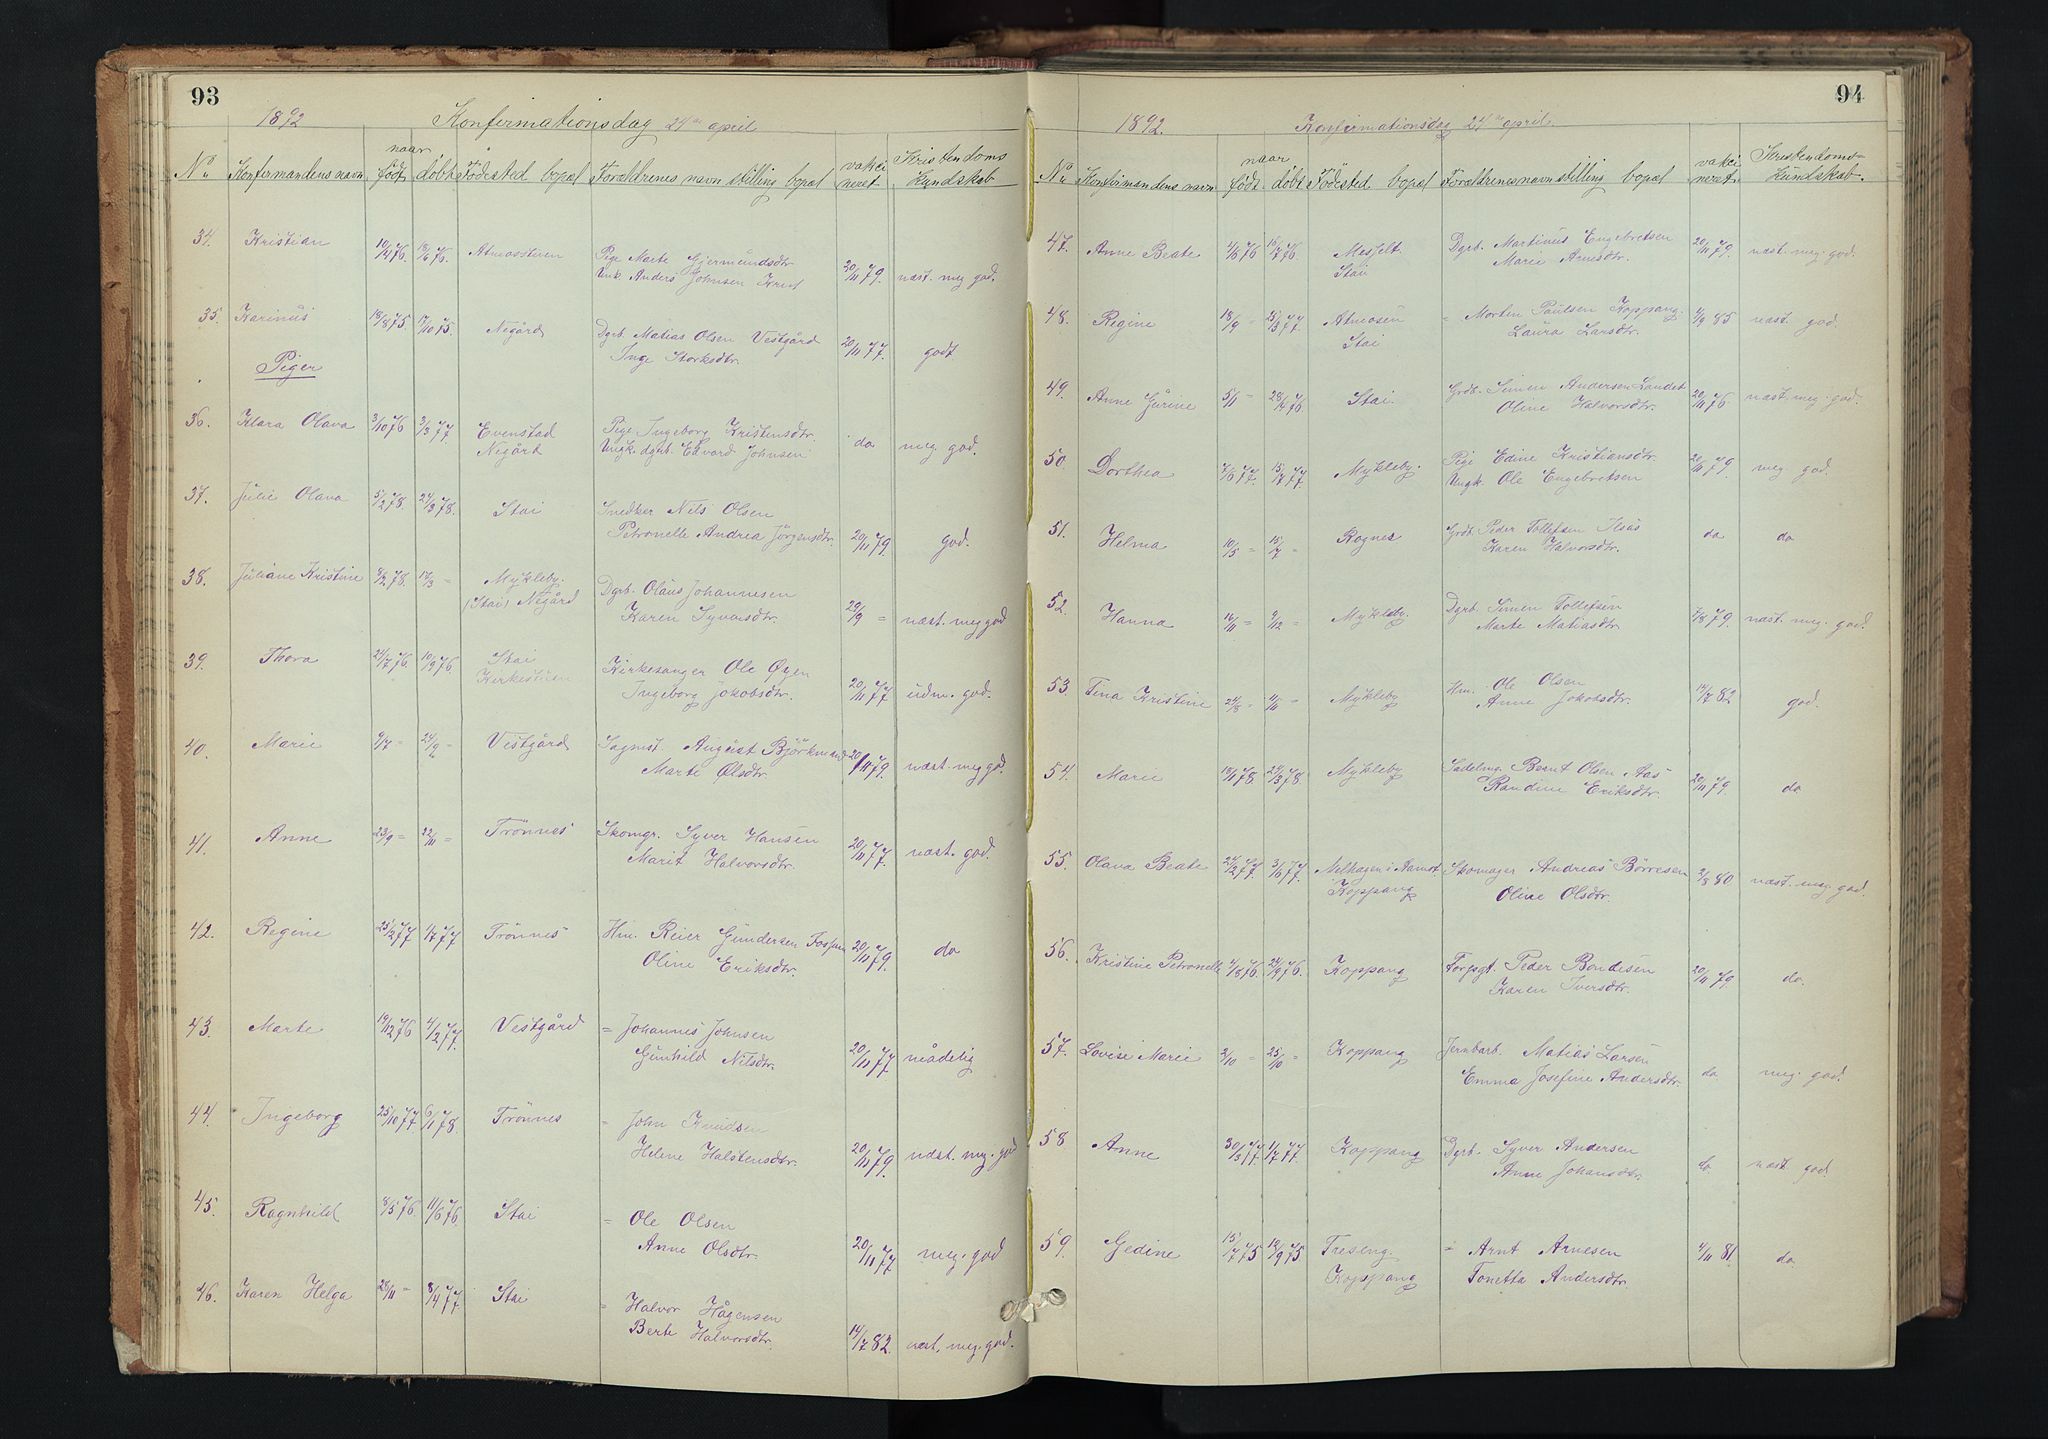 93
1892 Konfirmationsdag 24de april
No Konfirmandens navn naar født døbt Fødested bopæl Forældrenes navn stilling bopæl vakcineret Kristendoms Kundskab
34. Kristian 10/4 76. 18/6 76. Atmosstuen Pige Marte Gjermundsdtr.
Unk. Anders Johnsen Krud 20/11 79. næst. meg god.
35. Karinus 18/8 75. 17/10 75. Negård Dgrb. Matias Olsen Vestgård
Inge Storksdtr. 20/11 77. godt
Piger
36. Klara Olava 3/10 76 2/3 77 Evenstad Pige Ingeborg Kristensdtr. do meg. god.
Negård Ungk. dgrb. Edvard Johnsen
37. Julie Olava 5/2 78. 24/3 78. Stai Snedker Nils Olsen
Petronelle Andrea Jörgensdtr. 20/11 79. god.
38. Juliane Kristine 8/2 78. 17/3 = Mykleby. Dgrb. Olaus Johannesen
(Stai) Negård Karen Syversdtr. 29/9 = næst. meg god
39. Thora 21/7 76. 10/9 76. Stai Kirkesanger Ole Øyen
Kirkestuen Ingeborg Jokobsdtr. 20/11 77 udm. god.
40. Marie 9/7 = 24/9 = Vestgård Sagmst. August Björkmand
Marte Olsdtr. 20/11 79. næst. meg god.
41. Anne 23/9 = 22/11 = Trönnes Skomgr. Syver Hansen
Marit Halvorsdtr. 20/11 77. næst. god.
42. Regine 25/2 77 1/7 77 Trönnes Hm. Reier Gundersen
Oline Eriksdtr. 20/11 79. do
43. Marte 19/12 76 4/2 77. Vestgård = Johannes Johnsen
Gunhild Nilsdtr. 20/11 77. mådelig
44. Ingeborg 25/10 77 6/1 78. Trönnes = John Knudsen
Helene Halstensdtr. 20/11 79. næst. meg. god
45. Ragnhild 8/5 76. 11/6 76. Stai = Ole Olsen
Anne Olsdtr. 20/11 77 meg. god
46. Karen Helga 28/11 = 8/4 77. Stai = Halvor Hågensen
Berte Halvorsdtr. 14/7 82. næst. meg. god.
94
1892. Konfirmationsdag 24de april.
No Konfirmandens navn naar født døbt Fødested bopæl Forældrenes navn stilling bopæl vakcineret. Kristendoms= Kundskab.
47. Anne Beate 1/6 76 16/7 76. Messelt. Dgrb. Martinus Engebretsen 20/11 79. næst. meg. god.
Stai Marie Arnesdtr.
48. Regine 18/9 = 25/3 77. Atmosen = Morten Paulsen Koppang. 4/9 85 næst. god.
Stai Laura Larsdtr.
49. Anne Gurine 5/11 = 28/ 76 Stai. Grdb. Simen Andersen Landet
Oline Halvorsdtr. 20/11 76. næst. meg. god.
50. Dorthea 7/6 77. 15/7 77. Mykleby. Pige Edine Kristiansdtr. 20/11 79. meg god.
Ungk. Ole Engebretsen
51. Helma 10/5 = 15/7 = Rognes Grdb. Peder Tollefsen Ilsås do do
Karen Halvorsdtr.
52. Hanna 16/11 = 9/12 = Mykleby. Dgrb. Simen Tollefsen 7/8 79. næst. meg. god.
Marte Matiasdtr.
53. Tina Kristine 24/8 = 11/11 = Mykleby Hm. Ole Olsen 14/7 82 god.
Anne Jokobsdtr.
54. Marie 18/1 78. 24/3 78. Mykleby Sadelmg. Bernt Olsen Aas
Randine Eriksdtr. 20/11 79. do
55. Olava Beate 24/2 77. 3/6 77. Melhagen i Aamot Skomager Andreas Börresen 2/8 80. næst. meg. god.
Koppang Oline Olsdtr.
56. Kristine Petronelle 4/8 76. 24/9 76. Koppang Forpgt. Peder Bondesen
Karen Iversdtr. 20/11 79. do.
57. Lovise Marie 2/10 = 25/10 = Koppang Jernbarb. Matias Larsen
Emma Josefine Andersdtr. do meg. god.
58 Anne 30/3 77. 1/7 77. Koppang Dgrb. Syver Andersen
Anne Johansdtr. do. næst god.
59. Gedine 15/7 75 12/9 75. Treseng. = Arnt Arnesen 4/11 81 do
Koppang Tonetta Andersdtr.